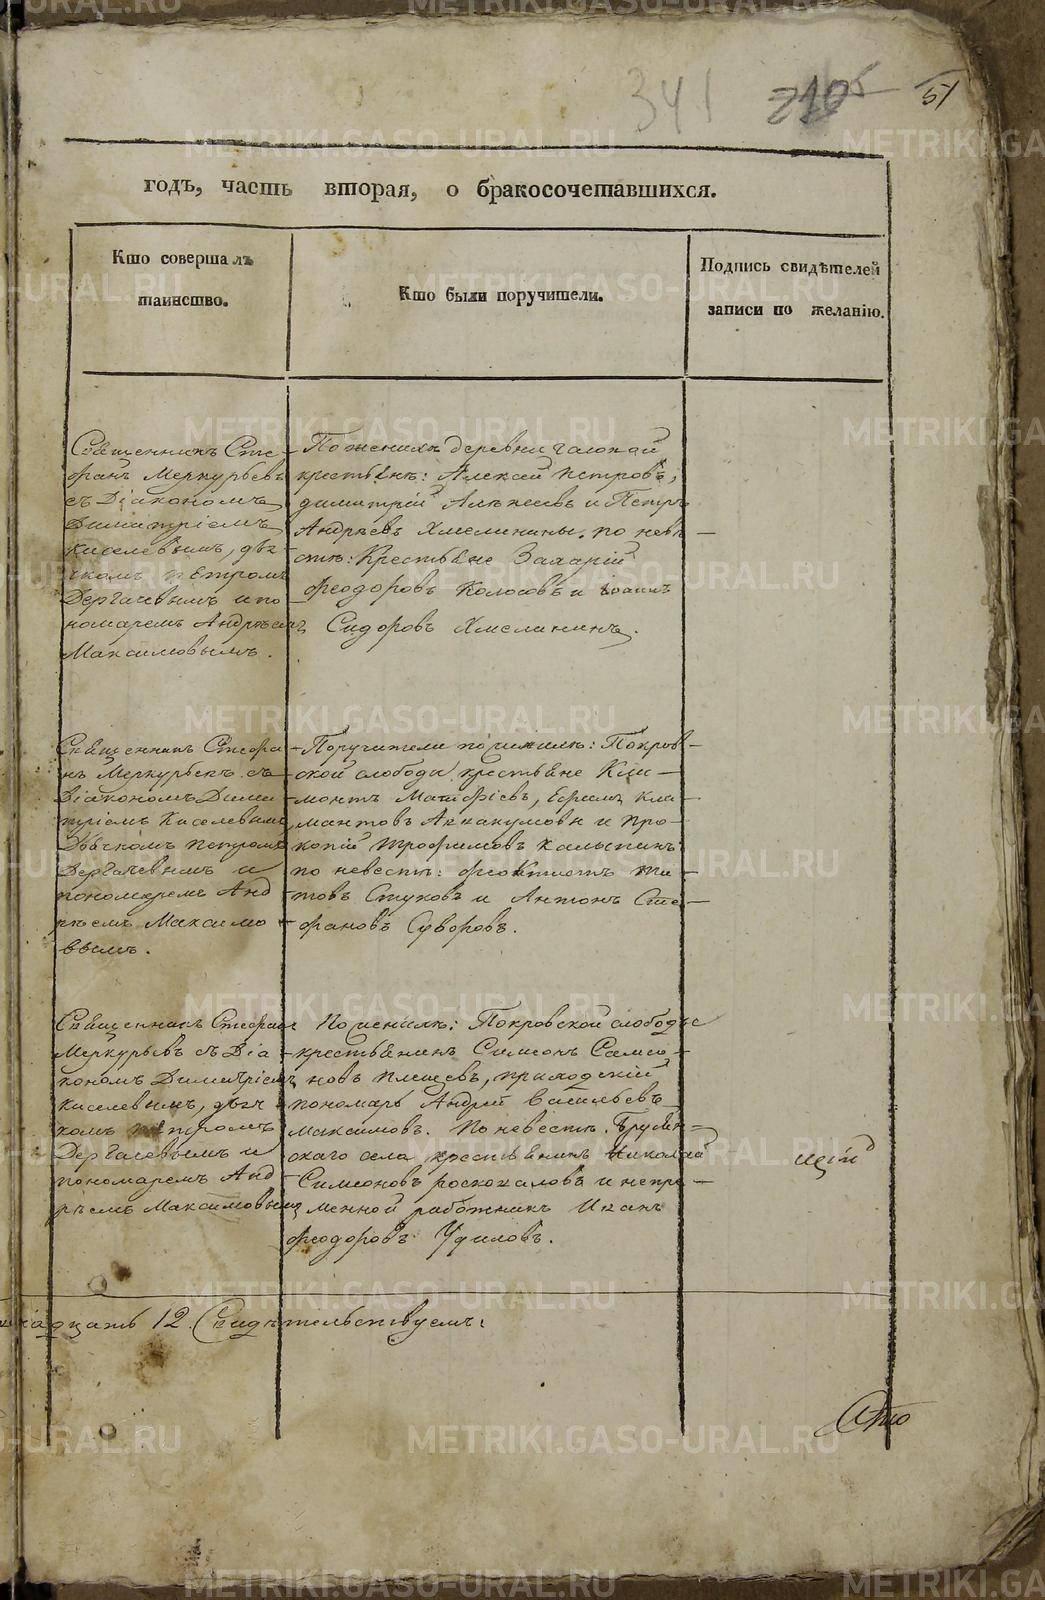 341 51
годъ, часть вторая, о бракосочетавшихся.
Кто совершалъ
таинство.
Кто были поручители.
Подпись свидѣтелей
записи по желанію.
Священникъ Сте-
фанъ Меркурьевъ
съ Діакономъ
Димитріемъ
Киселевымъ, дья-
чкомъ Петромъ
Дергачевымъ и по
номаремъ Андреемъ
Максимовымъ.
По женихѣ деревни
крестьяне: Алексѣй Петровъ,
Димитрій Алексеевъ и Петръ
Андреевъ Хмелинины. по невѣ-
стѣ: Крестьяне Захарій
Феодоровъ Колосовъ и Іоаннъ
Сидоровъ Хмелининъ.
Священникъ Стефа
нъ Меркурьевъ съ
Діакономъ Дими
тріемъ Киселевымъ,
Дьячкомъ Петромъ
Дергачевымъ и
пономаремъ Анд
реемъ Максимо
вымъ.
Поручители по женихѣ: Покров-
ской слободы крестьяне Кли-
монтъ Матфіевъ, Ефимъ Кли-
мантовъ Аввакумовы и Про-
копій Трофимовъ Калыпинъ
по невестѣ: Феоктистъ Ти-
товъ Стуковъ и Антонъ Сте-
фановъ Суворовъ.
Священникъ Стефанъ
Меркурьевъ съ Діа-
кономъ Димитріемъ
Киселевымъ, дьяч-
комъ Петромъ
Дергачевымъ и
пономаремъ Анд
реемъ Максимовымъ
По женихѣ: Покровской слободы
крестьянинъ Симеонъ Самсо-
новъ Плещевъ, приходскій
пономарь Андрей Васильевъ
Максимовъ. По невестѣ. Бруян-
скаго села крестьянинъ Николай
Симеоновъ и непре-
менной работникъ Иванъ
Феодоровъ Удиловъ.
щій
12. Свидѣтельствуемъ:
METRIKI.GASO-URAL.RU